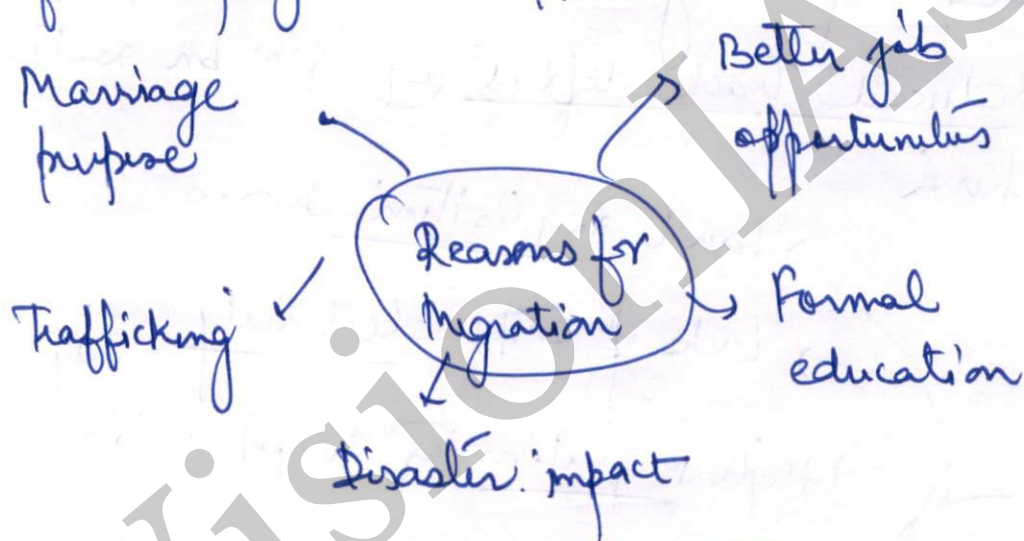 Marriage
purpose
Better job
opportunities
Reasons for
Migration
Trafficking
Formal
education
Disaster impact
VisionIAS